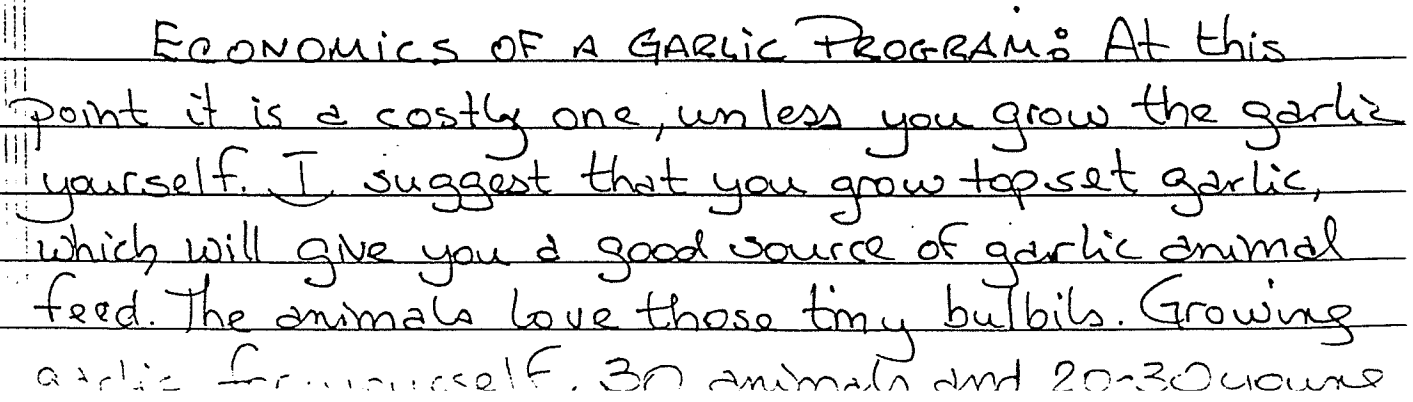 ECONOMICS OF A GARLIC PROGRAM: At this
point it is a costly one, unless you grow the garlic
yourself. I suggest that you grow topset garlic,
which will give you a good source of garlic animal
feed. The animals love those tiny bulbils. Growing
garlic for yourself, 30 animals and 20-30 young